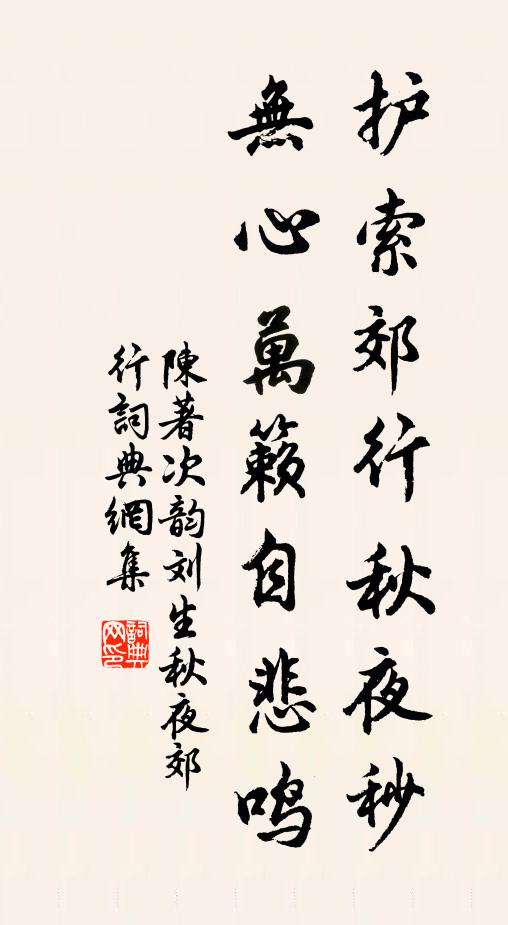 护索郊行秋夜秒
無心萬籟自悲鸣
陳著次韵刘生秋夜郊
行詞典網集
詞典网印